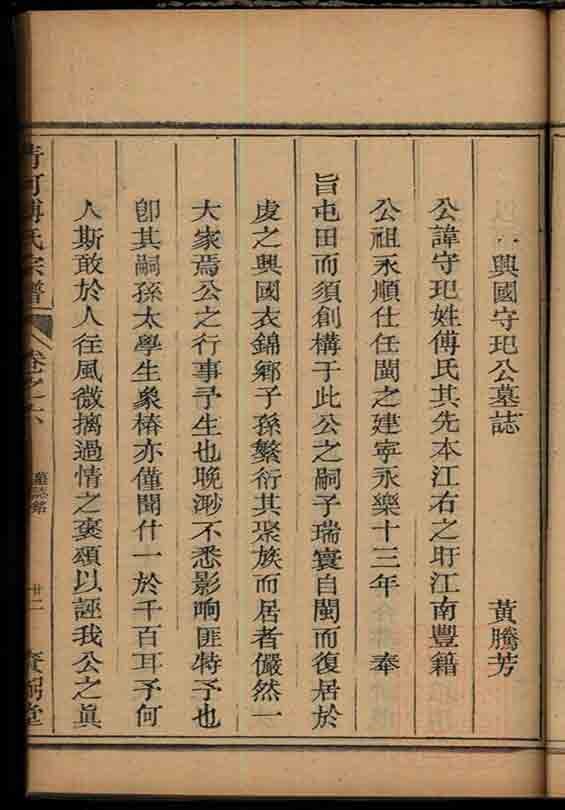 興國守玘公墓誌 黃騰芳
公諱守玘姓傅氏其先本江右之盱江南豐籍
公祖永順仕任閩之建寧永樂十三年 奉
旨屯田而須創構于此公之嗣子瑞寰自閩而復居於
虔之興國衣錦鄉子孫繁衍其聚族而居者儼然一
大家焉公之行事予生也晚渺不悉影响匪特予也
卽其嗣孫太學生象椿亦僅聞什一於千百耳予何
人斯敢於人往風微摛過情之褒頌以誣我公之眞
清河傅氏宗譜 卷之六 墓誌銘 廿二 堂